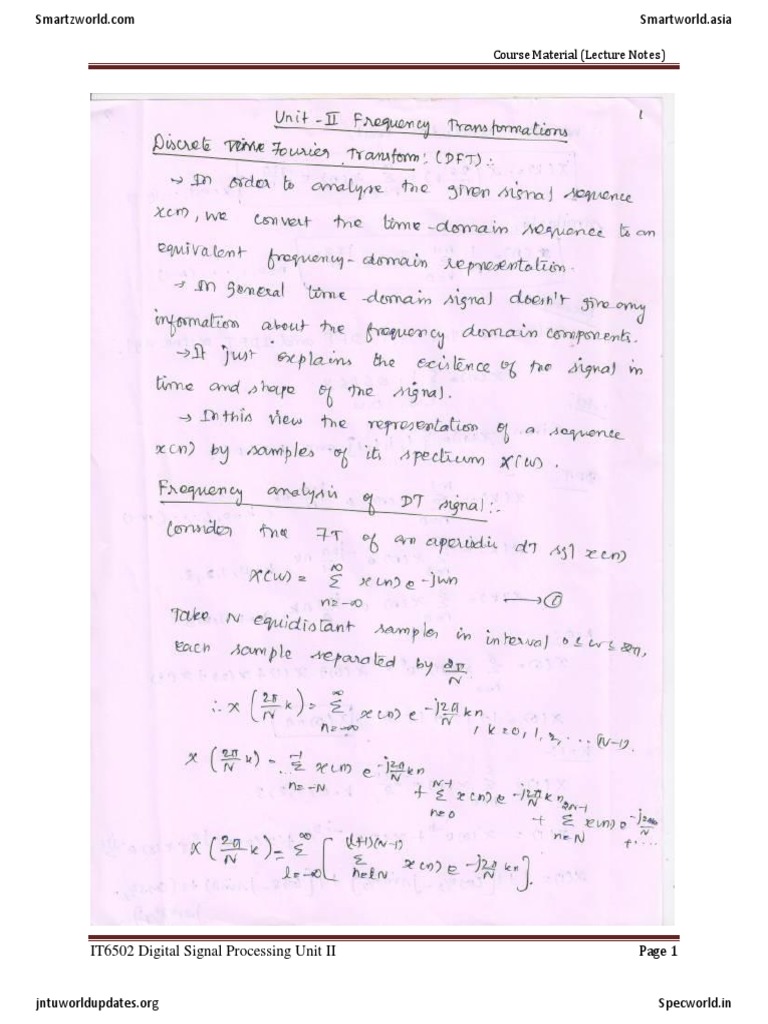 Smartzworld.com Smartworld.asia
Course Material (Lecture Notes)
1
Unit - II Frequency Transformations
Discrete Time Fourier Transform: (DFT) :-
→ In order to analyse the given signal sequence
x(n), we convert the time-domain sequence to an
equivalent frequency-domain representation.
→ In general time-domain signal doesn't give any
information about the frequency domain components.
→ It just explains the existence of the signal in
time and shape of the signal.
→ In this view the representation of a sequence
x(n) by samples of its spectrum X(ω).
Frequency analysis of DT signal:-
Consider the FT of an aperiodic DT sgl x(n)
X(ω) = ∞ Σ n=-∞ x(n) e^-jωn → ①
Take N equidistant samples in interval 0 ≤ ω ≤ 2π,
Each sample separated by 2π/N
∴ X (2π/N k) = ∞ Σ n=-∞ x(n) e^-j2π/N kn , k=0, 1, 2, ... (N-1).
X (2π/N k) = ... -1 Σ n=-N x(n) e^-j2π/N kn
+ N-1 Σ n=0 x(n) e^-j2π/N kn
+ 2N-1 Σ n=N x(n) e^-j2π/N
+ ....
X (2π/N k) = ∞ Σ l=-∞ [ (l+1)(N-1) Σ n=lN x(n) e^-j2π/N kn ].
IT6502 Digital Signal Processing Unit II Page 1
jntuworldupdates.org Specworld.in